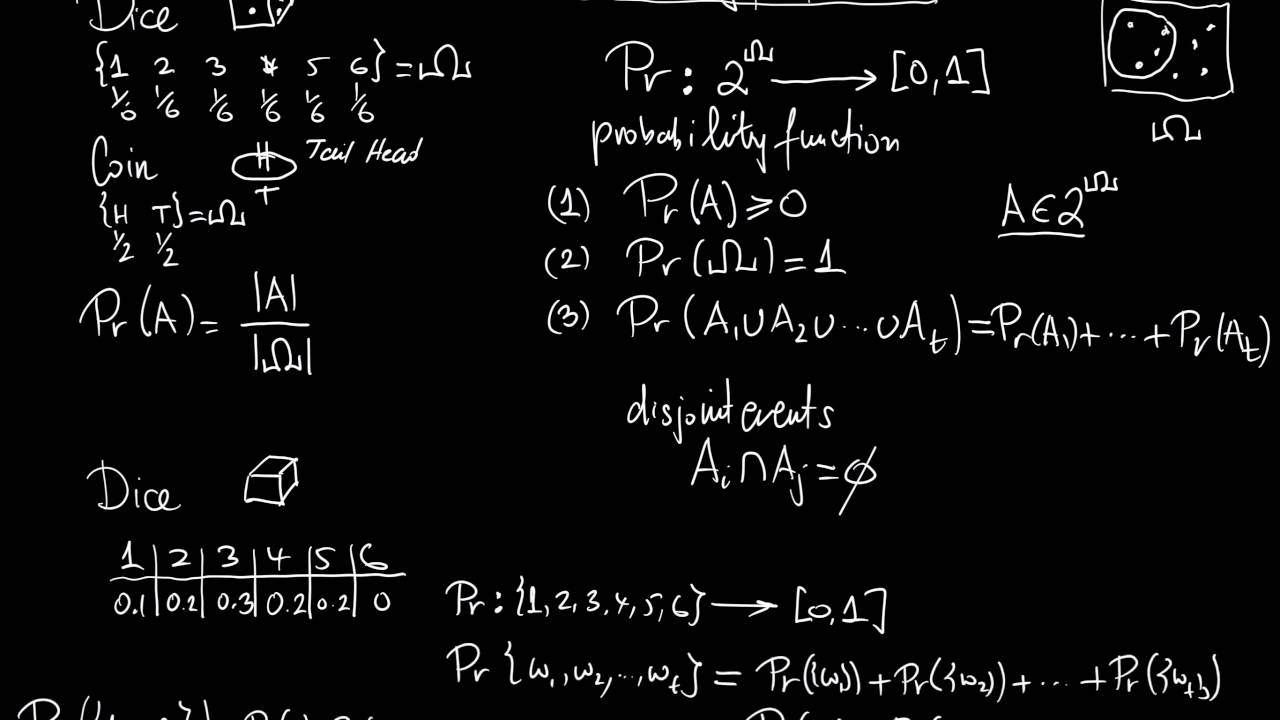 Dice
{1 2 3 4 5 6} = Ω
1/6 1/6 1/6 1/6 1/6 1/6
Coin H T Tail Head
{H T} = Ω
1/2 1/2
Pr(A) = |A| / |Ω|
Dice
1 | 2 | 3 | 4 | 5 | 6
0.1 | 0.2 | 0.3 | 0.2 | 0.2 | 0
Pr : 2^Ω ⟶ [0,1]
probability function
Ω
(1) Pr(A) ⩾ 0
A ∈ 2^Ω
(2) Pr(Ω) = 1
(3) Pr(A₁ ∪ A₂ ∪ ... ∪ Aₜ) = Pr(A₁) + ... + Pr(Aₜ)
disjoint events
Aᵢ ∩ Aⱼ = ∅
Pr : {1, 2, 3, 4, 5, 6} ⟶ [0,1]
Pr {ω₁, ω₂, ..., ωₜ} = Pr({ω₁}) + Pr({ω₂}) + ... + Pr({ωₜ})